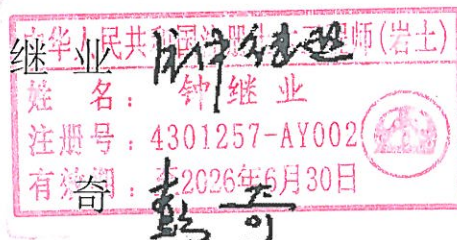 中华人民共和国注册土木工程师(岩土)
继 业 钟继业
姓 名：钟继业
注册号：4301257-AY002
有效期：至2026年6月30日
奇 彭奇